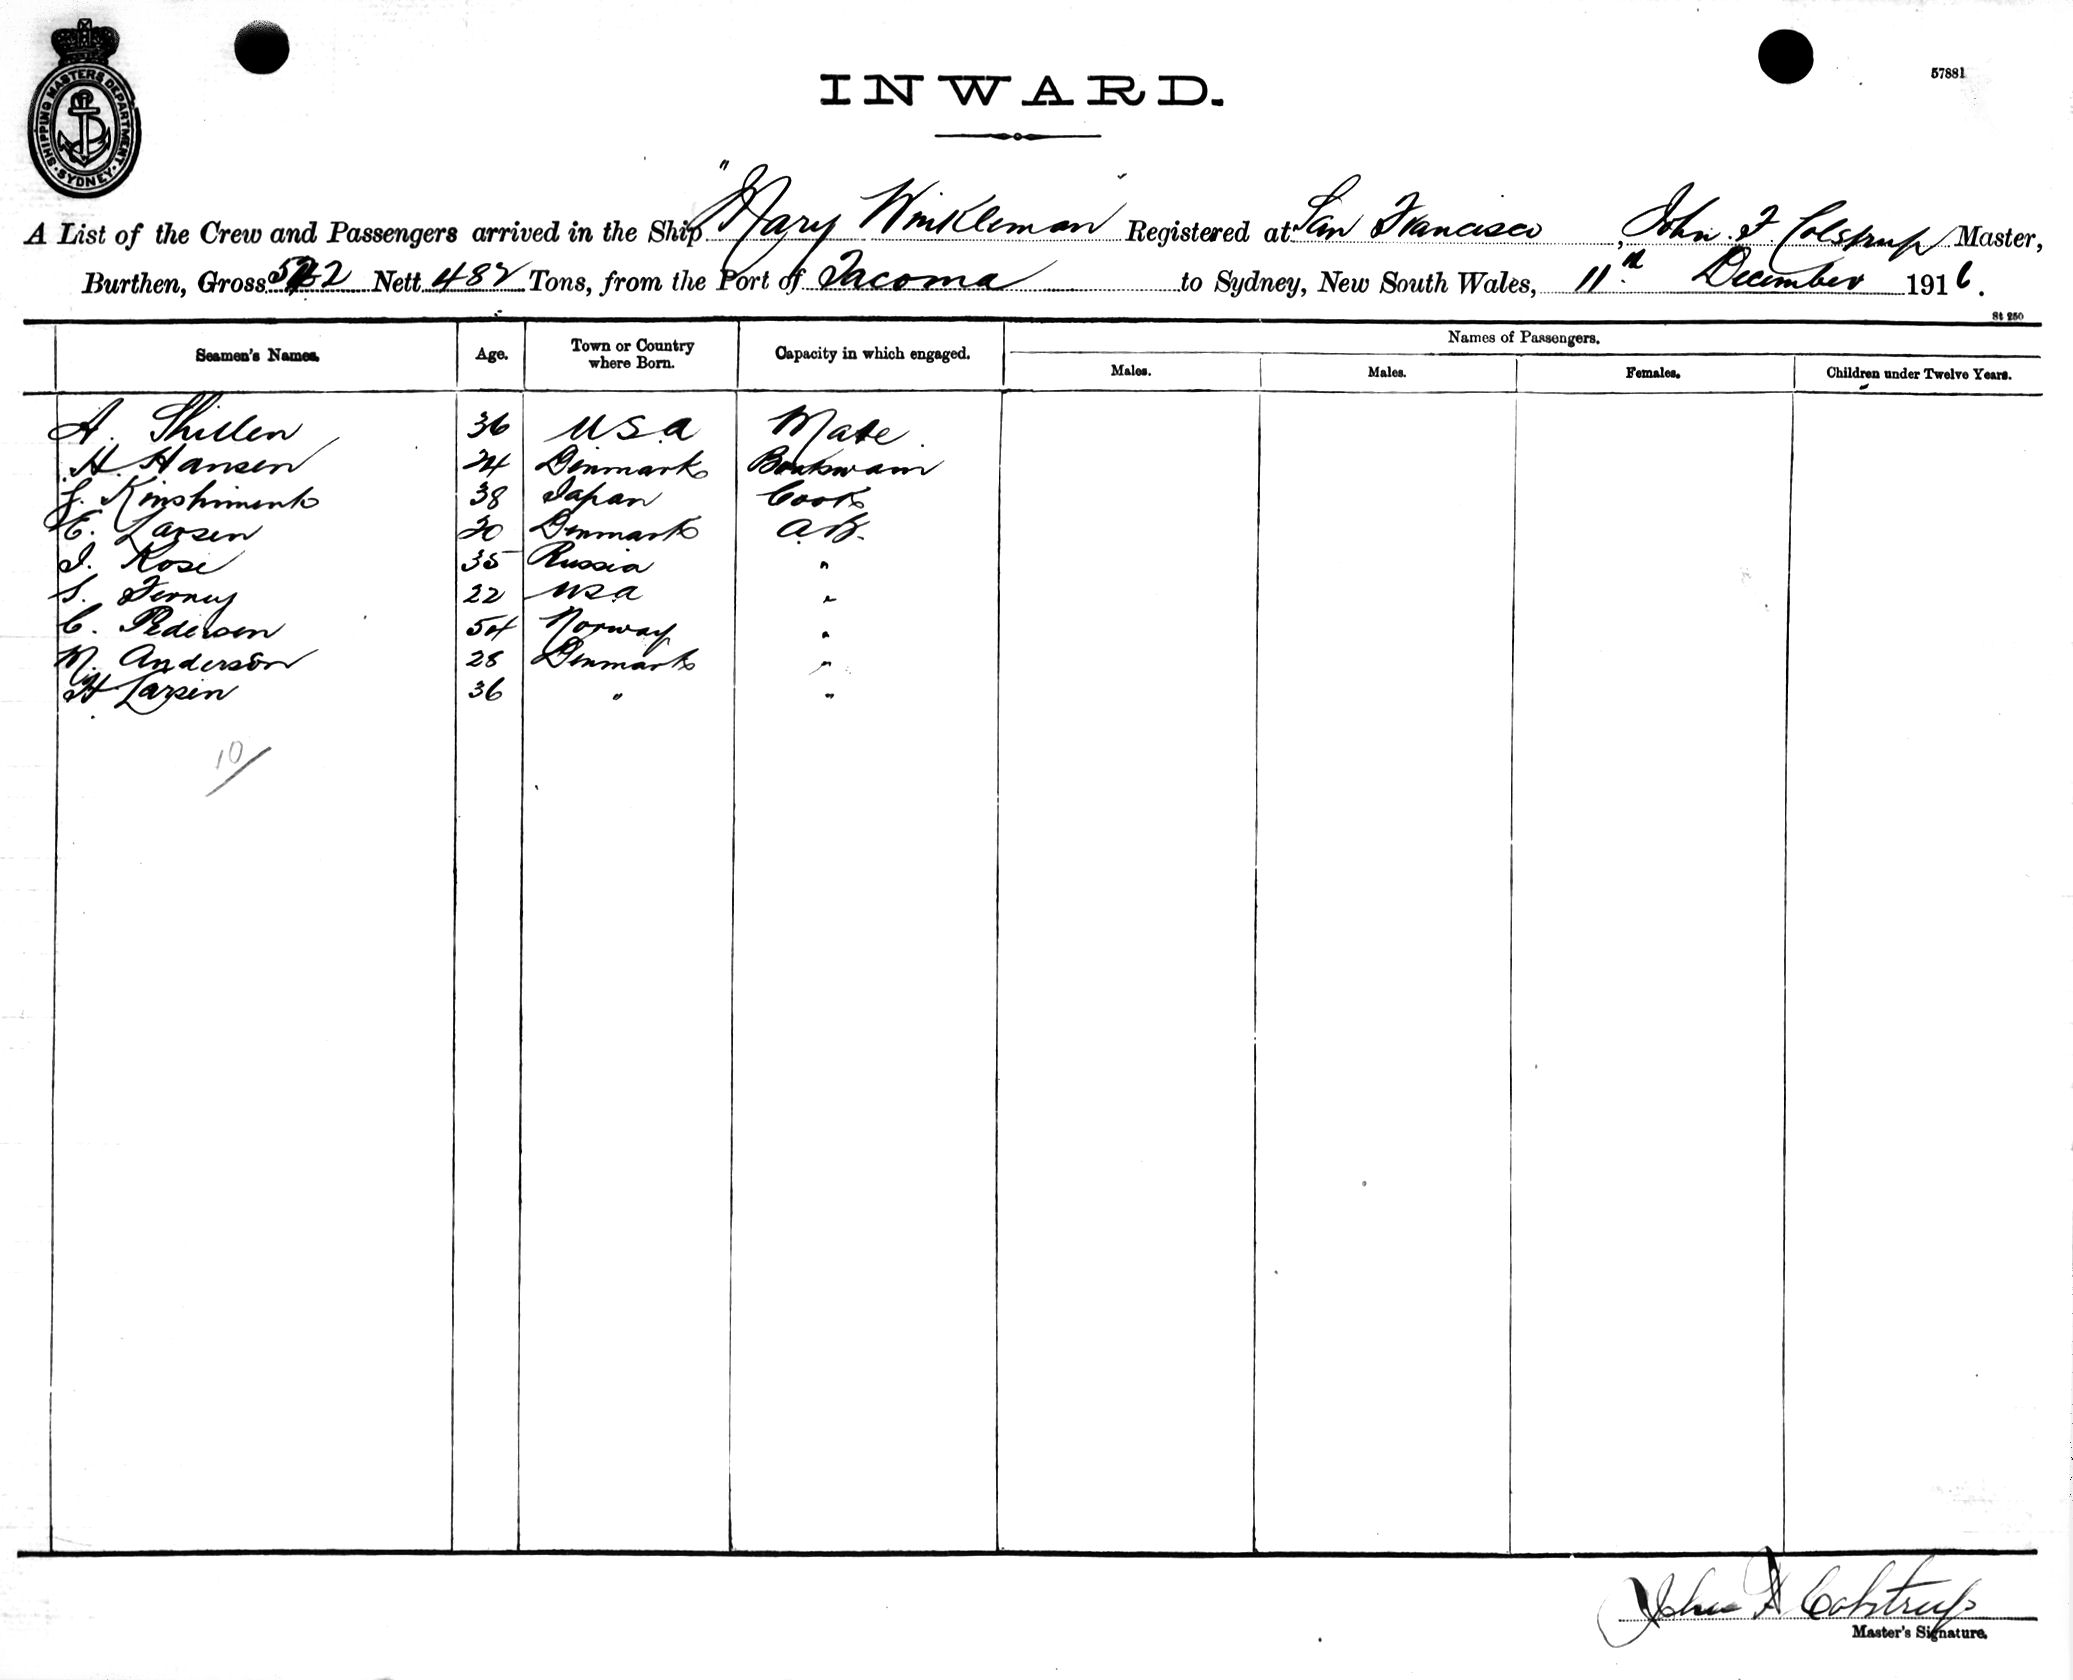 SHIPPING MASTERS DEPARTMENT
SYDNEY
57881
INWARD.
A List of the Crew and Passengers arrived in the Ship "Mary Winkleman" Registered at San Francisco, John F. Colstrup Master,
Burthen, Gross 522 Nett 482 Tons, from the Port of Tacoma to Sydney, New South Wales, 11th December 1916.
St 250
Seamen's Names. Age. Town or Country where Born. Capacity in which engaged. Names of Passengers.
Males. Males. Females. Children under Twelve Years.
A. Shillen 36 USA Mate
H. Hansen 24 Denmark Boatswain
J. 38 Japan Cook
E. Larsen 20 Denmark A.B.
I. Rose 35 Russia "
S. Ferney 22 USA "
C. Pedersen 54 Norway "
M. Anderson 28 Denmark "
H Larsen 36 " "
10/
John F Colstrup
Master's Signature.